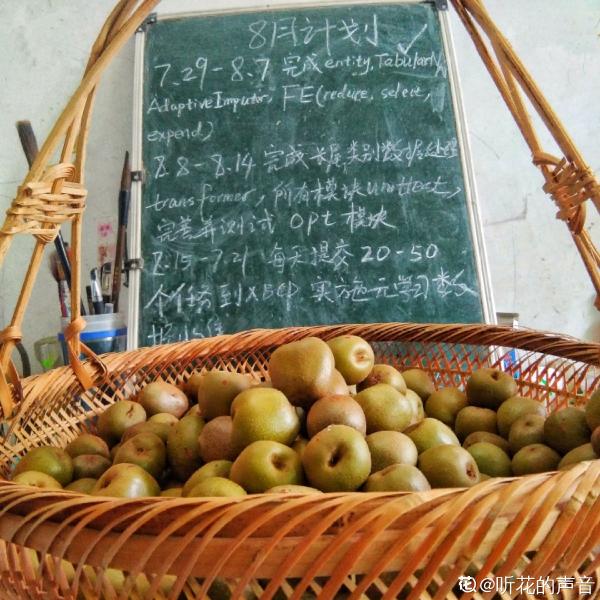 8月计划
7.29-8.7 完成entity, Tabular
AdaptiveImputer, FE(reduce, select,
expend)
8.8-8.14 完成长尾类别数据处理
transformer, 所有模块unittest,
完善并测试 opt 模块
8.15-7.21 每天提交 20-50
个任务到XBCP 实施元学习数
@听花的声音